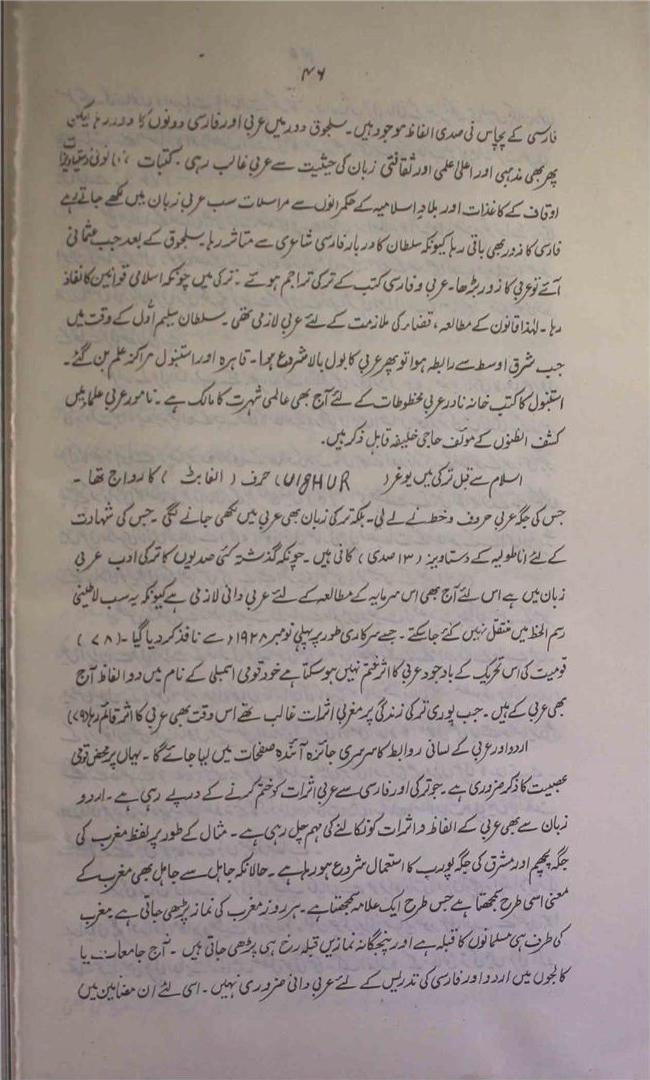 ۴۶
فارسی کے پچاس فی صدی الفاظ موجود ہیں۔ سلجوق دور میں عربی اور فارسی دونوں کا دور رہا لیکن
پھر بھی مذہبی اور اعلیٰ علمی اور ثقافتی زبان کی حیثیت سے عربی غالب رہی۔ کتبات، قانونی دستاویزات
اوقاف کے کاغذات اور بلادِ اسلامیہ کے حکمرانوں سے مراسلات سب عربی زبان میں لکھے جاتے رہے
فارسی کا زور بھی باقی رہا کیونکہ سلطان کا دربار فارسی شاعری سے متاثر رہا۔ سلجوق کے بعد جب عثمانی
آئے تو عربی کا زور بڑھا۔ عربی و فارسی کتب کے ترکی تراجم ہوئے۔ ترکی میں چونکہ اسلامی قوانین کا نفاذ
رہا۔ لہٰذا قانون کے مطالعہ، قضاء کی ملازمت کے لئے عربی لازمی تھی۔ سلطان سلیم اوّل کے وقت میں
جب شرق اوسط سے رابطہ ہوا تو پھر عربی کا بول بالا شروع ہوا۔ قاہرہ اور استنبول مراکز علم بن گئے۔
استنبول کا کتب خانہ نادر عربی مخطوطات کے لئے آج بھی عالمی شہرت کا مالک ہے۔ نامور عربی علماء میں
کشف الظنون کے مولف حاجی خلیفہ قابل ذکر ہیں۔
اسلام سے قبل ترکی میں یوغر (UIGHUR) حرف (الفابٹ) کا رواج تھا۔
جس کی جگہ عربی حروف و خط نے لے لی۔ بلکہ ترکی زبان بھی عربی میں لکھی جانے لگی۔ جس کی شہادت
کے لئے اناطولیہ کے دستاویز (۱۳ صدی) کافی ہیں۔ چونکہ گذشتہ کئی صدیوں کا ترکی ادب عربی
زبان میں ہے اس لئے آج بھی اس سرمایہ کے مطالعہ کے لئے عربی دانی لازمی ہے کیونکہ یہ سب لاطینی
رسم الخط میں منتقل نہیں کئے جا سکتے۔ جسے سرکاری طور پر پہلی نومبر ۱۹۲۸ء سے نافذ کر دیا گیا۔ (۷۸)
قومیت کی اس تحریک کے باوجود عربی کا اثر ختم نہیں ہو سکتا ہے خود قومی اسمبلی کے نام میں دو الفاظ آج
بھی عربی کے ہیں۔ جب پوری ترکی زندگی پر مغربی اثرات غالب تھے اس وقت بھی عربی کا اثر قائم رہا (۷۹)
اردو اور عربی کے لسانی روابط کا سرسری جائزہ آئندہ صفحات میں لیا جائے گا۔ یہاں پر محض قومی
عصبیت کا ذکر ضروری ہے۔ جو ترکی اور فارسی سے عربی اثرات کو ختم کرنے کے درپے رہی ہے۔ اردو
زبان سے بھی عربی کے الفاظ و اثرات کو نکالنے کی مہم چل رہی ہے۔ مثال کے طور پر لفظ مغرب کی
جگہ پچھم اور مشرق کی جگہ پورب کا استعمال شروع ہو رہا ہے۔ حالانکہ جاہل سے جاہل بھی مغرب کے
معنی اسی طرح سمجھتا ہے جس طرح ایک علامہ سمجھتا ہے۔ ہر روز مغرب کی نماز پڑھی جاتی ہے۔ مغرب
کی طرف ہی مسلمانوں کا قبلہ ہے اور پنجگانہ نمازیں قبلہ رخ ہی پڑھی جاتی ہیں۔ آج جامعات یا
کالجوں میں اردو اور فارسی کی تدریس کے لئے عربی دانی ضروری نہیں۔ اسی لئے ان مضامین میں